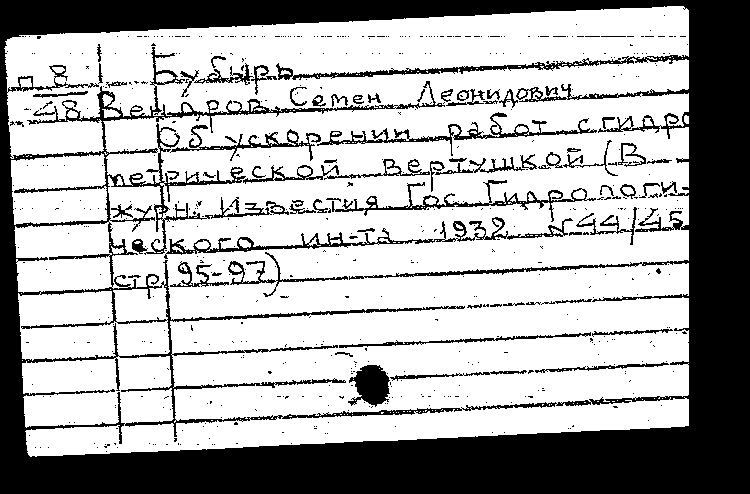 п 8 Бубырь
48 Вендров, Семен Леонидович
Об ускорении работ с гидро
метрической вертушкой (В
журн: Известия Гос. Гидрологи-
ческого ин-та 1932 №44/45
стр. 95-97)